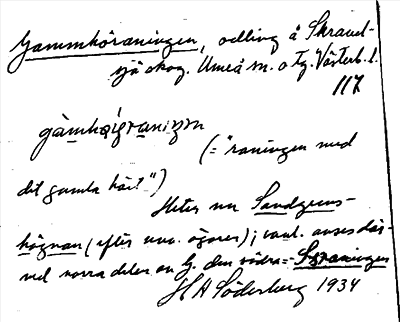 Gammhöraningen, odling å Skravel-
sjö skog. Umeå sn. o tg. Västerb. l.
117
(= "raningen med
det gamla
Heter nu Sandgrens-
högnan (efter nuv. ägaren); vanl. anses där-
ned norra delen av G. den södra =
H A Söderberg 1934